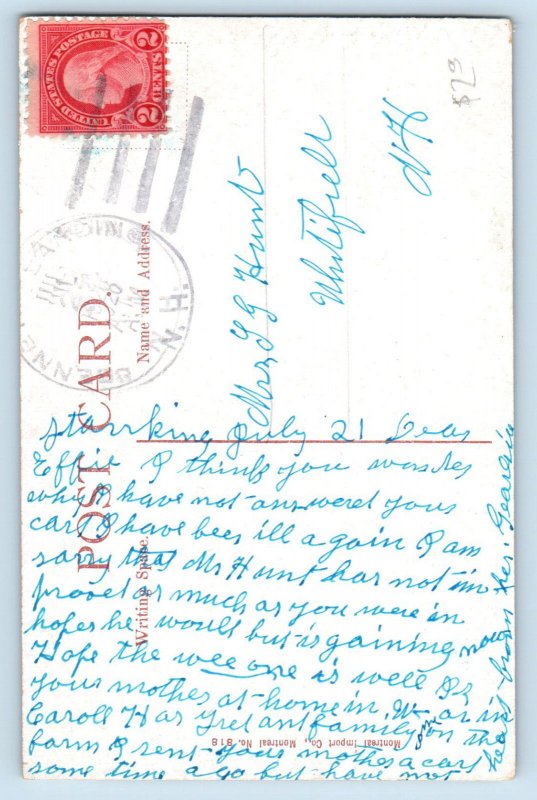 UNITED STATES POSTAGE
2 CENTS 2
$23
LANDING
N.H.
POST CARD.
Name and Address.
Writing Space.
Montreal Import Co., Montreal No. 818
Mrs, L G Hunt
Whitifield
N H
Starrking July 21 Dear
Effie I think you wonder
why I have not answered your
card I have been ill again I am
sorry that Mr Hunt has not im
proved as much as you were in
hopes he would but is gaining now
Hope the wee one is well Is
your mother at home in W or in
Caroll Has family on the
farm I sent your mother a card
some time ago but have not
heard from her. Georgia